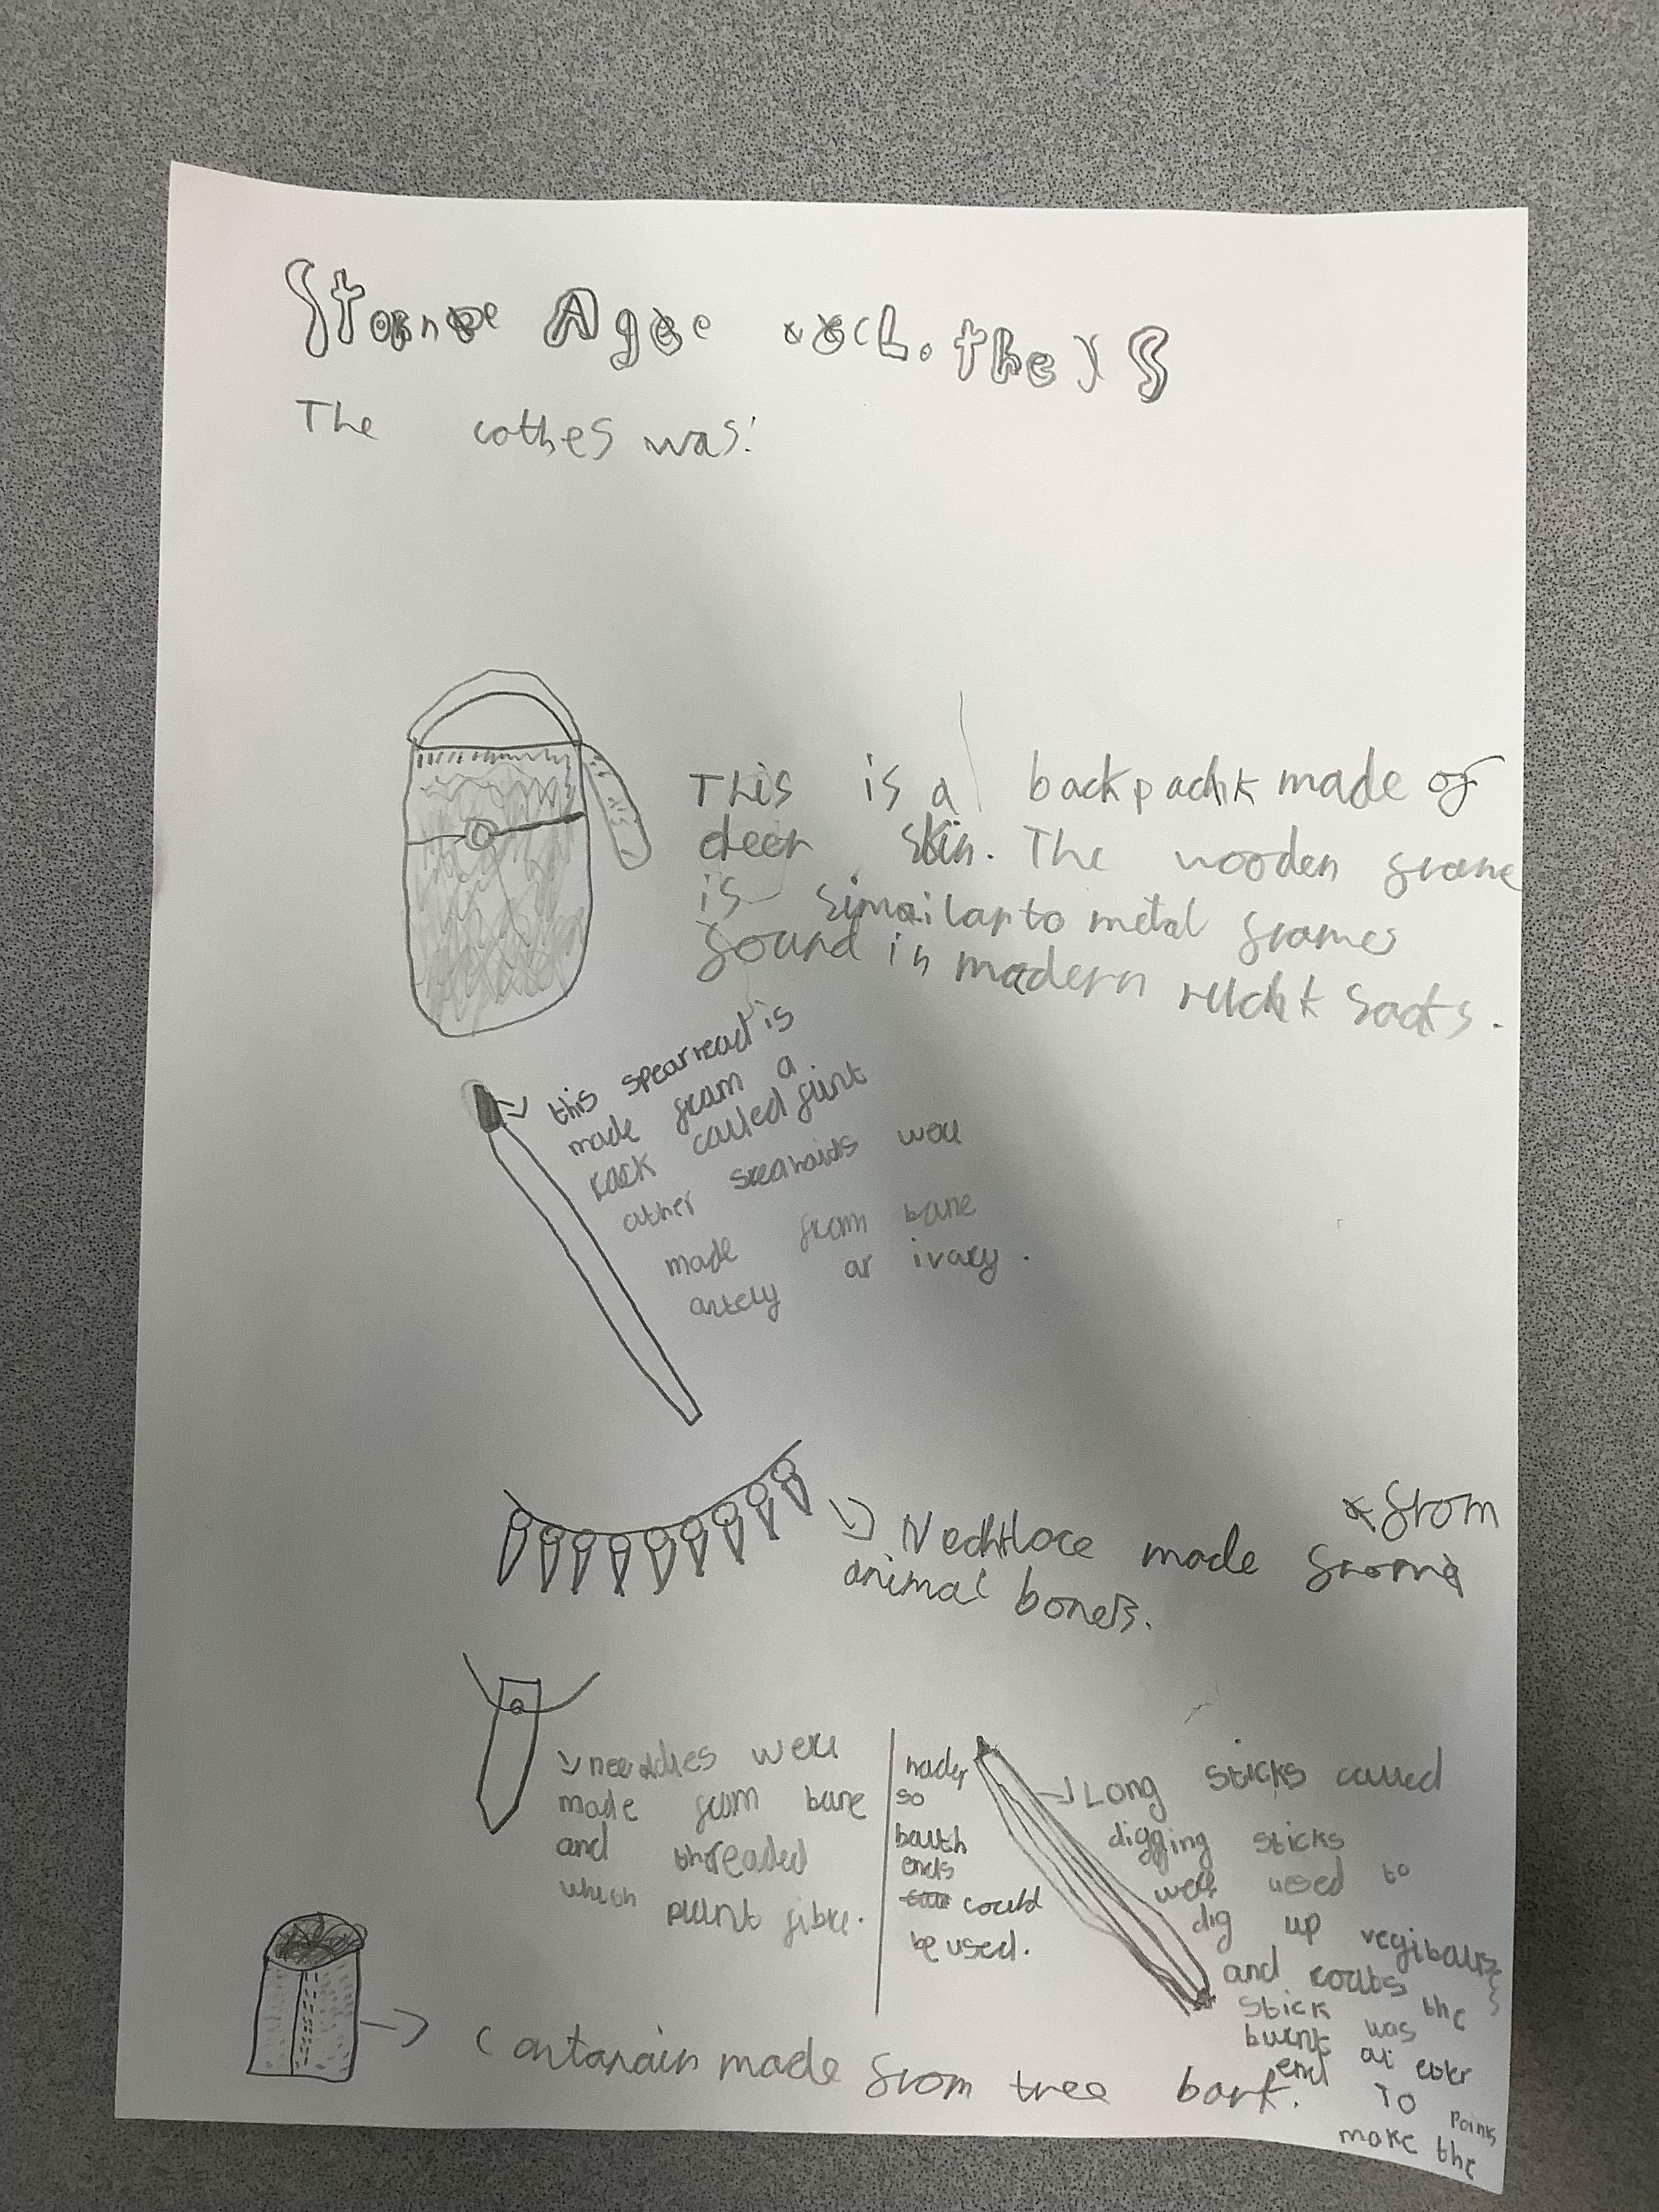 Stone Age clothes
The cothes was:
This is a backpachk made of
deer skin. The wooden frame
is simailar to metal frames
found in modern ruchk sacks.
this spearhead is
made from a
rock called flint
other were
made from bone
or ivory.
Nechklace made
*from
animal bones.
needdles were
made from bone
and threaded
plant fibre.
Long sticks called
digging sticks
were used to
dig up
and roots the
stick was
burnt at
end To
make the
points
so
ends
could
be used.
made from tree bark.